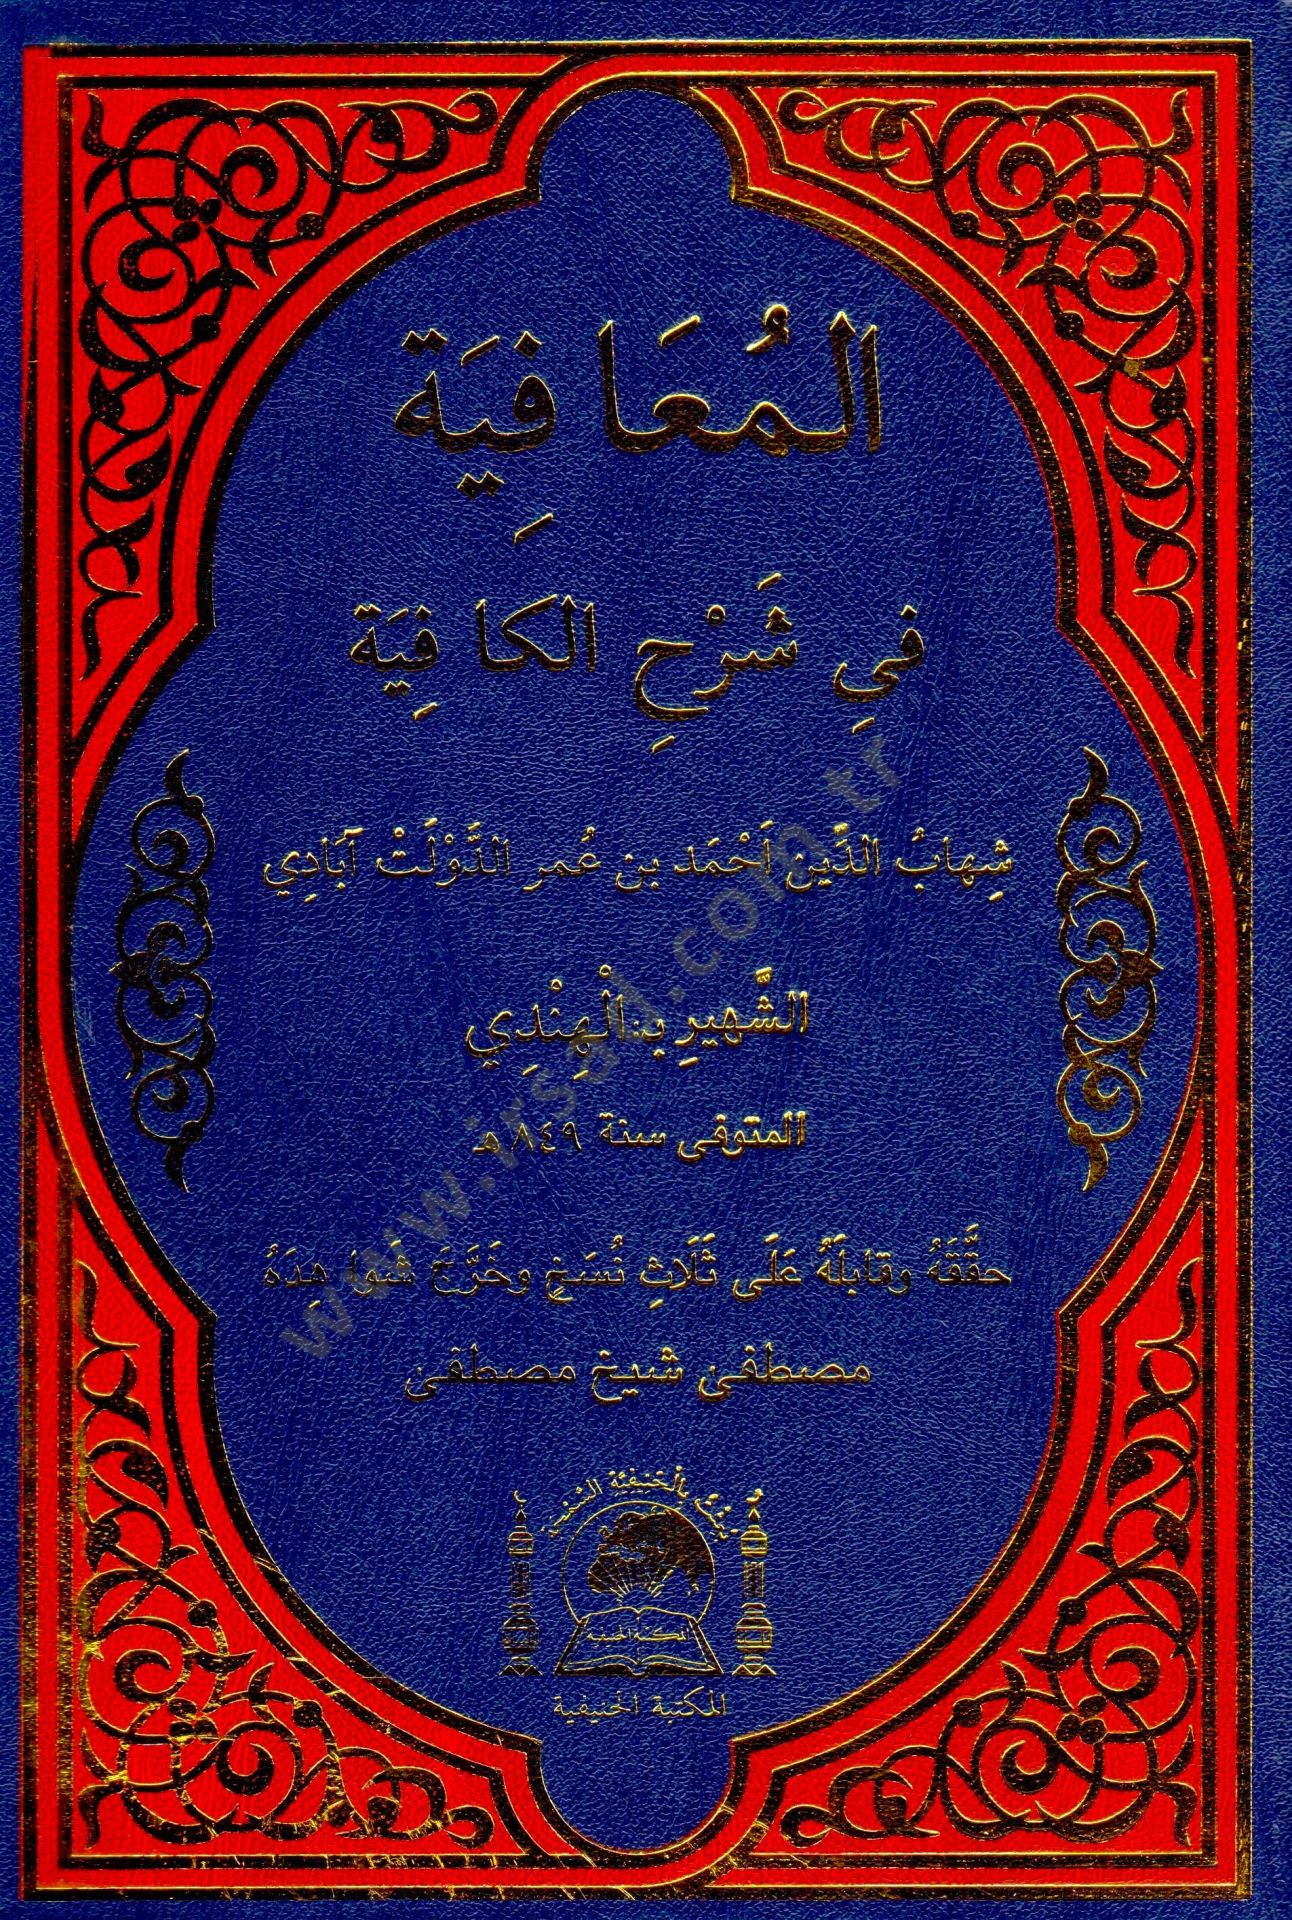 المُعَافِيَة
فِي شَرْحِ الكَافِيَة
شِهابُ الدِّينِ اَحْمَد بن عُمر الدَّوْلَتْ آبَادِي
الشَّهِيرِ بـ:الْهِنْدِي
المتوفى سنة ٨٤٩ هـ
حقَّقَهُ وقابلَهُ عَلَى ثَلَاثِ نُسَخٍ وخَرَّجَ شَوا هِدَهُ
مصطفى شيخ مصطفى
المكتبة الحنيفية
المكتبة الحنيفية
www.irsad.com.tr